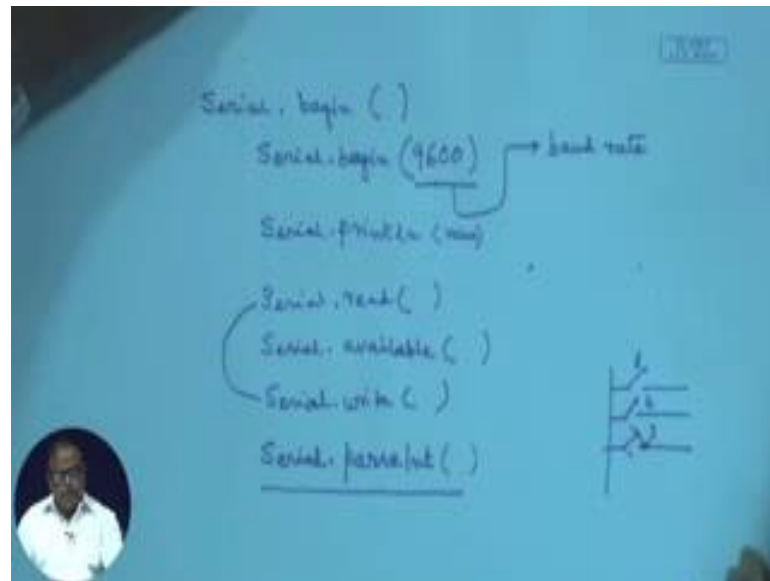 Serial. begin ( )
Serial.begin (9600) → baud rate
Serial.println (
Serial.read ( )
Serial. available ( )
Serial.write ( )
Serial. parseInt ( )